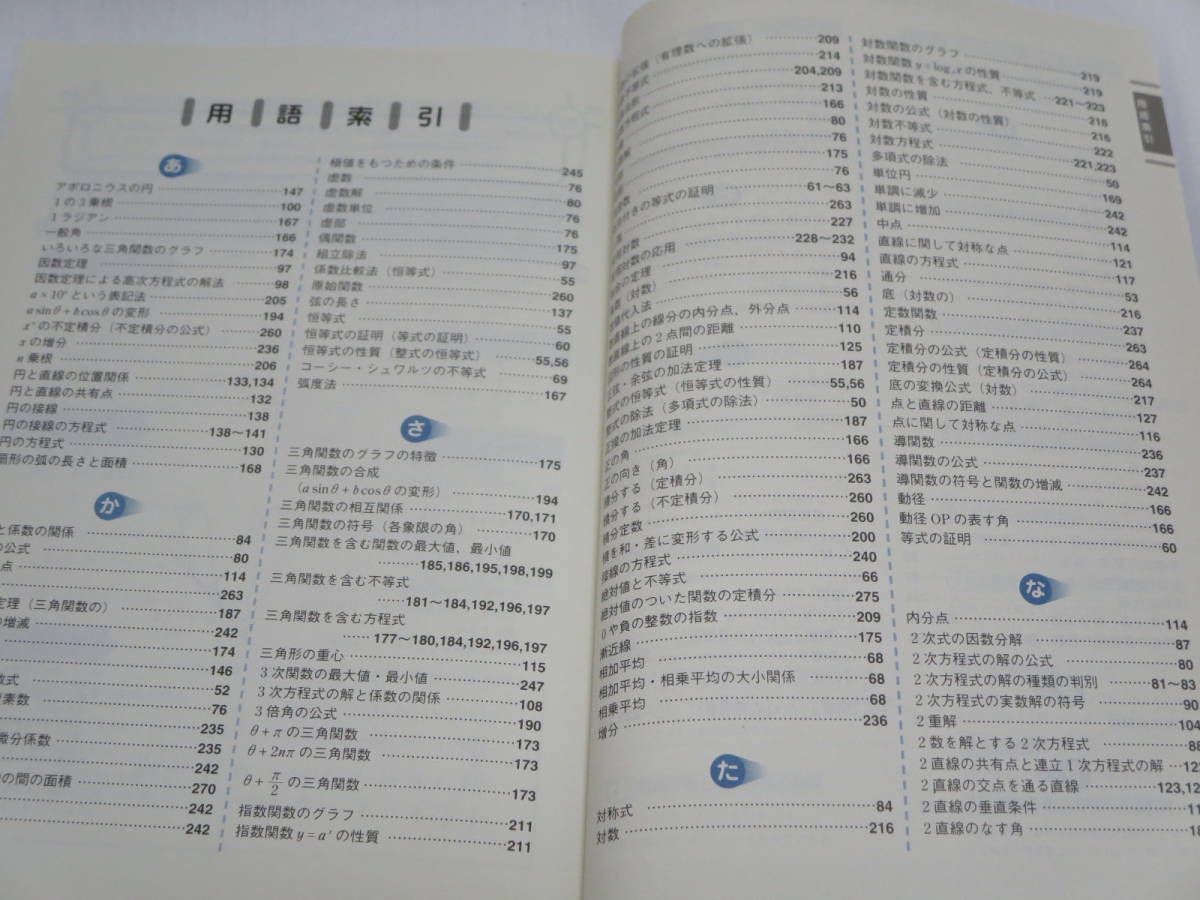 用語索引
あ
アポロニウスの円 147
1の3乗根 100
1ラジアン 167
一般角 166
いろいろな三角関数のグラフ 174
因数定理 97
因数定理による高次方程式の解法 98
a×10ⁿという表記法 205
a sinθ+b cosθの変形 194
xⁿの不定積分(不定積分の公式) 260
xの増分 236
n乗根 206
円と直線の位置関係 133,134
円と直線の共有点 132
円の接線 138
円の接線の方程式 138〜141
円の方程式 130
扇形の弧の長さと面積 168
か
と係数の関係 84
の公式 80
点 114
263
定理(三角関数の) 187
の増減 242
174
146
数式 52
素数 76
235
微分係数 235
242
の間の面積 270
242
242
極値をもつための条件 245
虚数 76
虚数解 80
虚数単位 76
虚部 76
偶関数 175
組立除法 97
係数比較法(恒等式) 55
原始関数 260
弦の長さ 137
恒等式 55
恒等式の証明(等式の証明) 60
恒等式の性質(整式の恒等式) 55,56
コーシー・シュワルツの不等式 69
弧度法 167
さ
三角関数のグラフの特徴 175
三角関数の合成
(a sinθ+b cosθの変形) 194
三角関数の相互関係 170,171
三角関数の符号(各象限の角) 170
三角関数を含む関数の最大値、最小値
185,186,195,198,199
三角関数を含む不等式
181〜184,192,196,197
三角関数を含む方程式
177〜180,184,192,196,197
三角形の重心 115
3次関数の最大値・最小値 247
3次方程式の解と係数の関係 108
3倍角の公式 190
θ+πの三角関数 173
θ+2nπの三角関数 173
θ+π/2の三角関数 173
指数関数のグラフ 211
指数関数y=aˣの性質 211
拡張(有理数への拡張) 209
等式 214
204,209
213
程式 166
80
76
175
76
付きの等式の証明 61〜63
263
対数 227
対数の応用 228〜232
の定理 94
(対数) 216
代入法 56
直線上の線分の内分点、外分点 114
直線上の2点間の距離 110
の性質の証明 125
正弦・余弦の加法定理 187
整式の恒等式(恒等式の性質) 55,56
整式の除法(多項式の除法) 50
正接の加法定理 187
正の角 166
正の向き(角) 166
積分する(定積分) 263
積分する(不定積分) 260
積分定数 260
積を和・差に変形する公式 200
接線の方程式 240
絶対値と不等式 66
絶対値のついた関数の定積分 275
0や負の整数の指数 209
漸近線 175
相加平均 68
相加平均・相乗平均の大小関係 68
相乗平均 68
増分 236
た
対称式 84
対数 216
対数関数のグラフ 219
対数関数y=logₐxの性質 219
対数関数を含む方程式、不等式 221〜223
対数の性質 216
対数の公式(対数の性質) 216
対数不等式 222
対数方程式 221,223
多項式の除法 50
単位円 169
単調に減少 242
単調に増加 242
中点 114
直線に関して対称な点 121
直線の方程式 117
通分 53
底(対数の) 216
定数関数 237
定積分 263
定積分の公式(定積分の性質) 264
定積分の性質(定積分の公式) 264
底の変換公式(対数) 217
点と直線の距離 127
点に関して対称な点 116
導関数 236
導関数の公式 237
導関数の符号と関数の増減 242
動径 166
動径OPの表す角 166
等式の証明 60
な
内分点 114
2次式の因数分解 87
2次方程式の解の公式 80
2次方程式の解の種類の判別 81〜83
2次方程式の実数解の符号 90
2重解 104
2数を解とする2次方程式 88
2直線の共有点と連立1次方程式の解
2直線の交点を通る直線 123,
2直線の垂直条件
2直線のなす角
用語索引